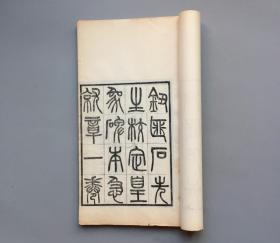 鈕匪石先
生校定皇
象碑本急
就章一卷